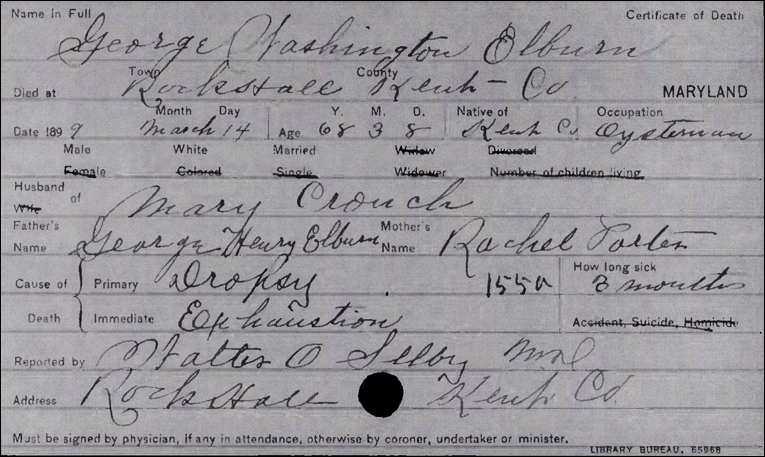 Name in Full Certificate of Death
George Washington Elburn
Town County
Died at Rockhall Kent Co MARYLAND
Month Day Y. M. D. Native of Occupation
Date 1899 March 14 Age 68 3 8 Kent Co. Oysterman
Male White Married Widow Divorced
Female Colored Single Widower Number of children living
Husband
Wife of Mary Crouch
Father's Mother's
Name George Henry Elburn Name Rachel Porter
How long sick
Cause of Primary Dropsy 155a 3 months
Death Immediate Exhaustion Accident, Suicide, Homicide
Reported by Walter O Selby
Address Rock Hall Kent Co
Must be signed by physician, if any in attendance, otherwise by coroner, undertaker or minister.
LIBRARY BUREAU, 65968